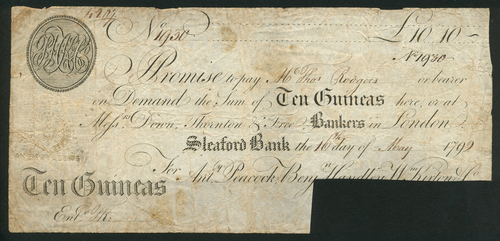 No 1930 £10"10"-
No 1930
I Promise to pay Mr Thos Rodgers or bearer
on Demand the Sum of Ten Guineas here, or at
Messrs Down, Thornton & Free Bankers in London
Sleaford Bank the 16th day of May 1792
For Anty Peacock, Benjn Handley, Wm Kirton & Co
Ten Guineas
Entd